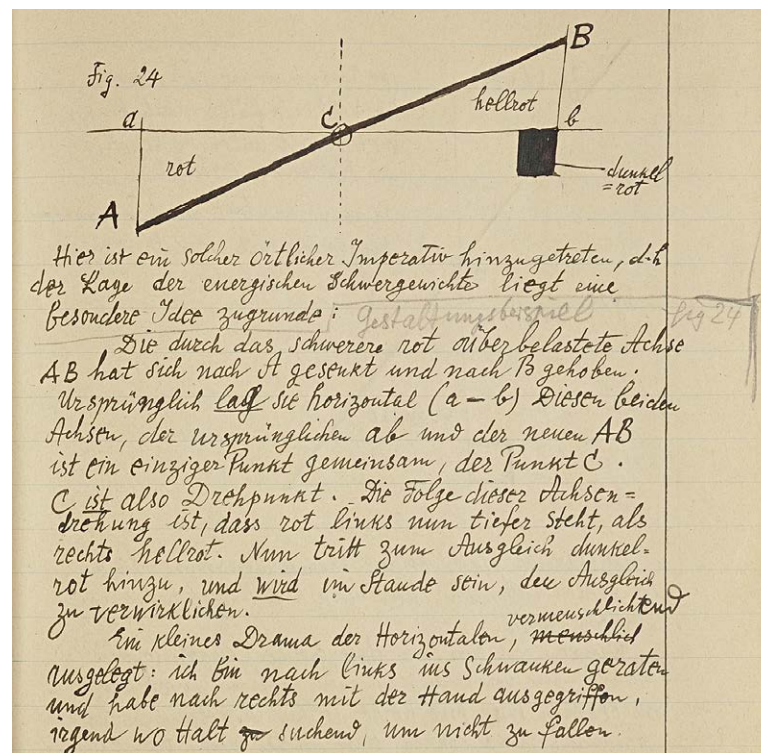 Fig. 24
B
a
C
hellrot
b
rot
dunkel
= rot
A
Hier ist ein solcher örtlicher Imperativ hinzugetreten, d.h
der Lage der energischen Schwergewichte liegt eine
besondere Idee zugrunde: Gestaltungsbeispiel fig 24
Die durch das schwerere rot überbelastete Achse
AB hat sich nach A gesenkt und nach B gehoben.
Ursprünglich lag sie horizontal (a – b) Diesen beiden
Achsen, der ursprünglichen ab und der neuen AB
ist ein einziger Punkt gemeinsam, der Punkt C.
C ist also Drehpunkt. Die Folge dieser Achsen=
drehung ist, dass rot links nun tiefer steht, als
rechts hellrot. Nun tritt zum Ausgleich dunkel=
rot hinzu, und wird im Stande sein, den Ausgleich
zu verwirklichen.
vermenschlichend
Ein kleines Drama der Horizontalen, menschlich
ausgelegt: ich bin nach links ins Schwanken geraten
und habe nach rechts mit der Hand ausgegriffen,
irgend wo Halt zu suchend, um nicht zu fallen.